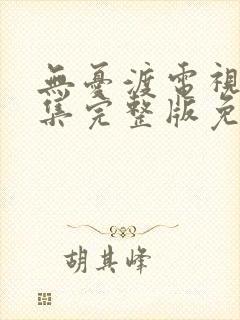 無憂渡電視
集完整版免
胡其峰